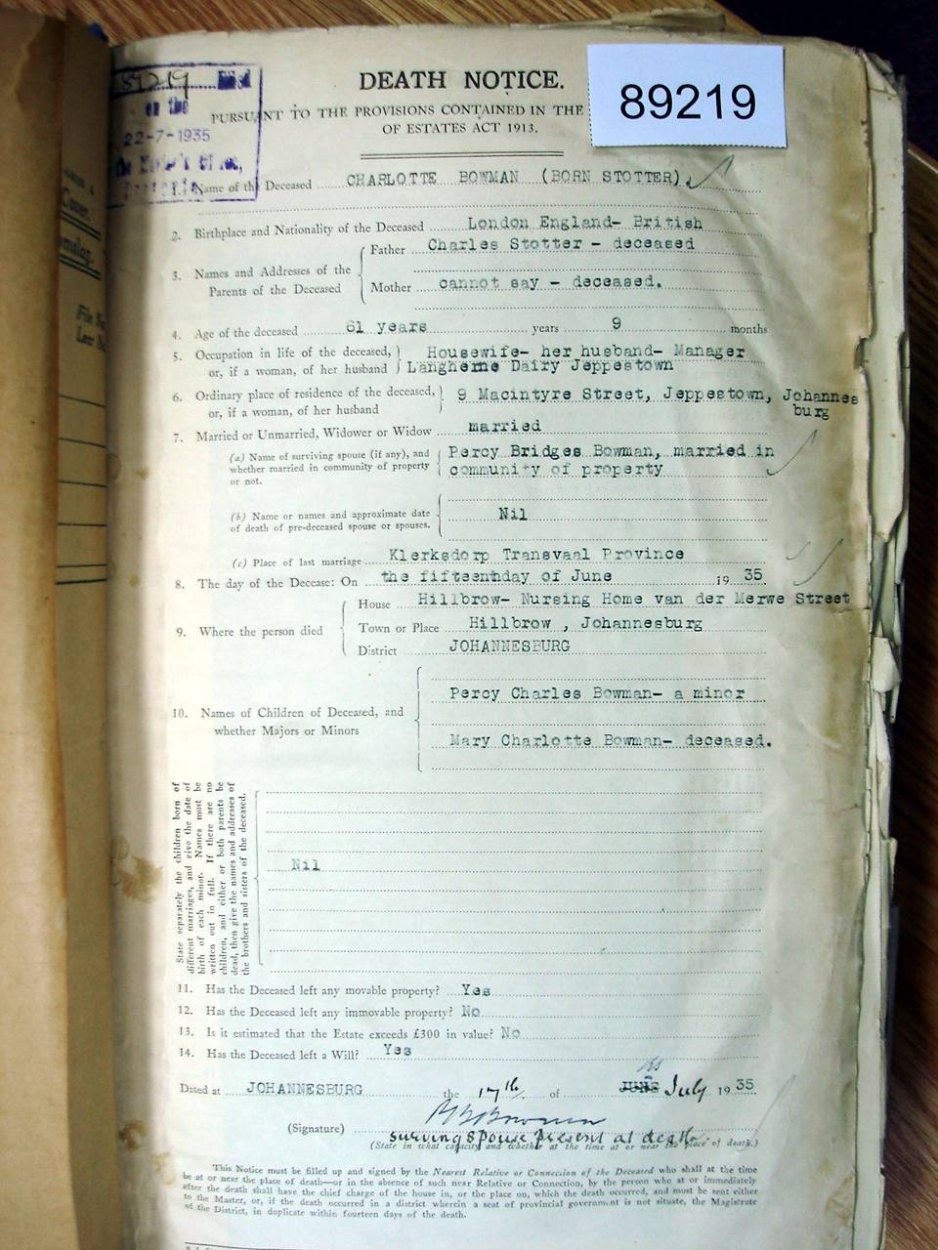 89219
DEATH NOTICE.
PURSUANT TO THE PROVISIONS CONTAINED IN THE
OF ESTATES ACT 1913.
89219
on the
22-7-1935
Name of the Deceased CHARLOTTE BOWMAN (BORN STOTTER).
2. Birthplace and Nationality of the Deceased London England- British
3. Names and Addresses of the Parents of the Deceased
Father Charles Stotter - deceased
Mother cannot say - deceased.
4. Age of the deceased 61 years years 9 months
5. Occupation in life of the deceased, Housewife- her husband- Manager
or, if a woman, of her husband Langherne Dairy Jeppestown
6. Ordinary place of residence of the deceased, 9 Macintyre Street, Jeppestown, Johannes
or, if a woman, of her husband burg
7. Married or Unmarried, Widower or Widow married
(a) Name of surviving spouse (if any), and Percy Bridges Bowman, married in
whether married in community of property community of property
or not.
(b) Name or names and approximate date Nil
of death of pre-deceased spouse or spouses.
(c) Place of last marriage Klerksdorp Transvaal Province
8. The day of the Decease: On the fifteenthday of June 19 35.
9. Where the person died
House Hillbrow- Nursing Home van der Merwe Street
Town or Place Hillbrow , Johannesburg
District JOHANNESBURG
10. Names of Children of Deceased, and
whether Majors or Minors
Percy Charles Bowman- a minor
Mary Charlotte Bowman- deceased.
State separately the children born of
different marriages, and give the date of
birth of each minor. Names must be
written out in full. If there are no
children, and either or both parents be
dead, then give the names and addresses of
the brothers and sisters of the deceased.
Nil
11. Has the Deceased left any movable property? Yes
12. Has the Deceased left any immovable property? No
13. Is it estimated that the Estate exceeds £300 in value? No
14. Has the Deceased left a Will? Yes
Dated at JOHANNESBURG the 17th of JUNE July 19 35
(Signature) Bowman
surviving spouse present at death.
(State in what capacity and whether at the time at or near the place of death.)
This Notice must be filled up and signed by the Nearest Relative or Connection of the Deceased who shall at the time
be at or near the place of death—or in the absence of such near Relative or Connection, by the person who at or immediately
after the death shall have the chief charge of the house in, or the place on, which the death occurred, and must be sent either
to the Master, or, if the death occurred in a district wherein a seat of provincial government is not situate, the Magistrate
of the District, in duplicate within fourteen days of the death.